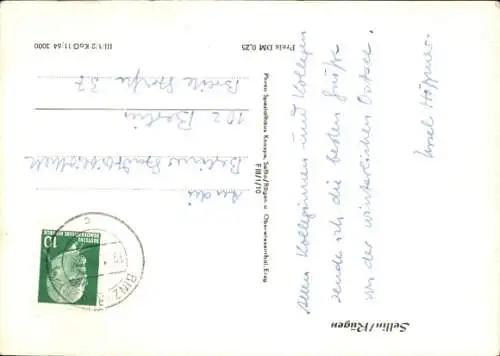 Sellin/Rügen
Allen Kolleginnen und Kollegen
sende ich die besten Grüße
von der winterlichen Ostsee.
Ursel Höppner
Photo Spezialhaus Knospe, Sellin/Rügen u. Oberwiesenthal/Erzg.
F III/1/10
DEUTSCHE
DEMOKRATISCHE REPUBLIK
10
BINZ
c
An die
Berliner Stadtbibliothek
102 Berlin
Breite Straße 37
III/1/2 KoG 11/64 3000
Preis DM 0,25